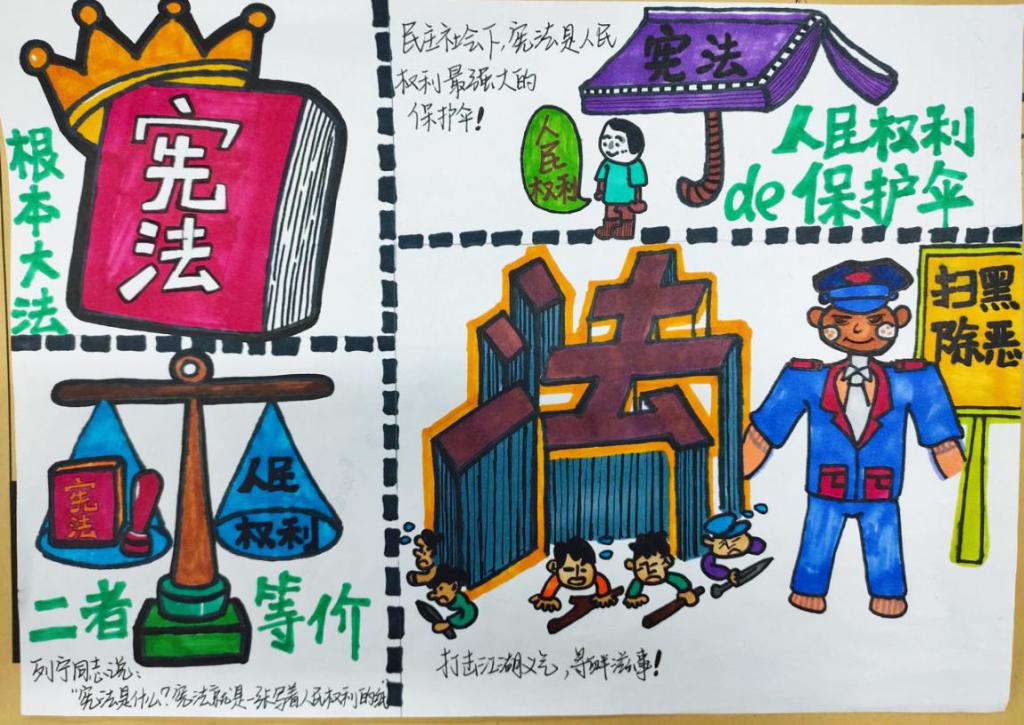 根本大法
宪法
民主社会下,宪法是人民
权利最强大的
保护伞!
宪法
人民
权利
人民权利
de保护伞
宪法
人民
权利
二者等价
列宁同志说:
"宪法是什么?宪法就是一张写着人民权利的纸
法
扫黑
除恶
打击江湖义气,寻衅滋事!